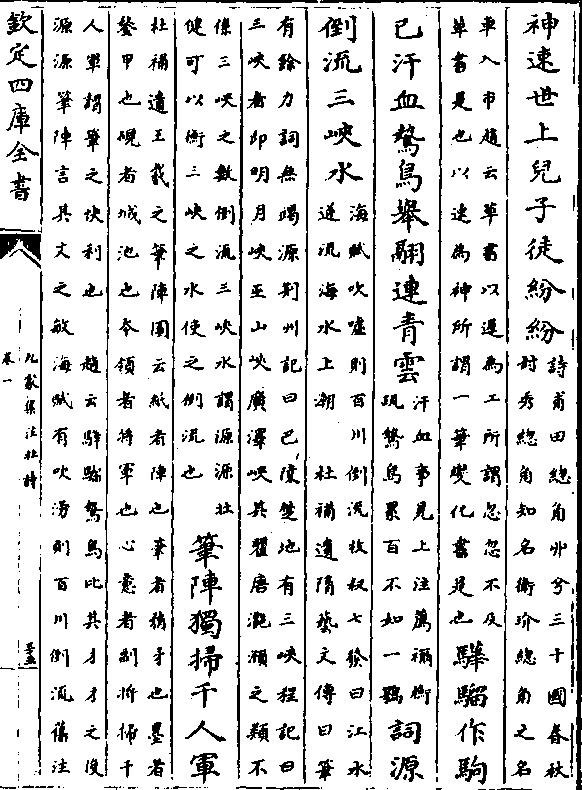 神速世上兒子徒紛紛
詩甫田總角丱兮三十國春秋
封秀總角知名衛玠總角之名
車入市趙云草書以遲為工所謂忽忽不及
草書是也以速為神所謂一筆變化書是也
驊騮作駒
已汗血鷙鳥舉翮連青雲
汗血事見上注薦禰衡
鷙鳥累百不如一鶚
詞源
倒流三峽水
海賦吹噓則百川倒流枚叔七發曰江水
逆流海水上潮 杜補遺隋藝文傳曰筆
有餘力詞無竭源荆州記曰巴陵楚地有三峽程記曰
三峽者即明月峽巫山峽廣澤峽其瞿唐灔澦之類不
係三峽之數倒流三峽水謂源源壮
健可以衝三峽之水使之倒流也
筆陣獨掃千人軍
杜補遺王羲之筆陣圖云紙者陣也筆者矟矛也墨者
鍪甲也硯者城池也本領者將軍也心意者副將掃千
人軍謂筆之快利也 趙云驊騮鷙鳥比其才才之俊
源源筆陣言其文之敏海賦有吹澇則百川倒流舊注
欽定四庫全書
九家集注杜詩
卷一